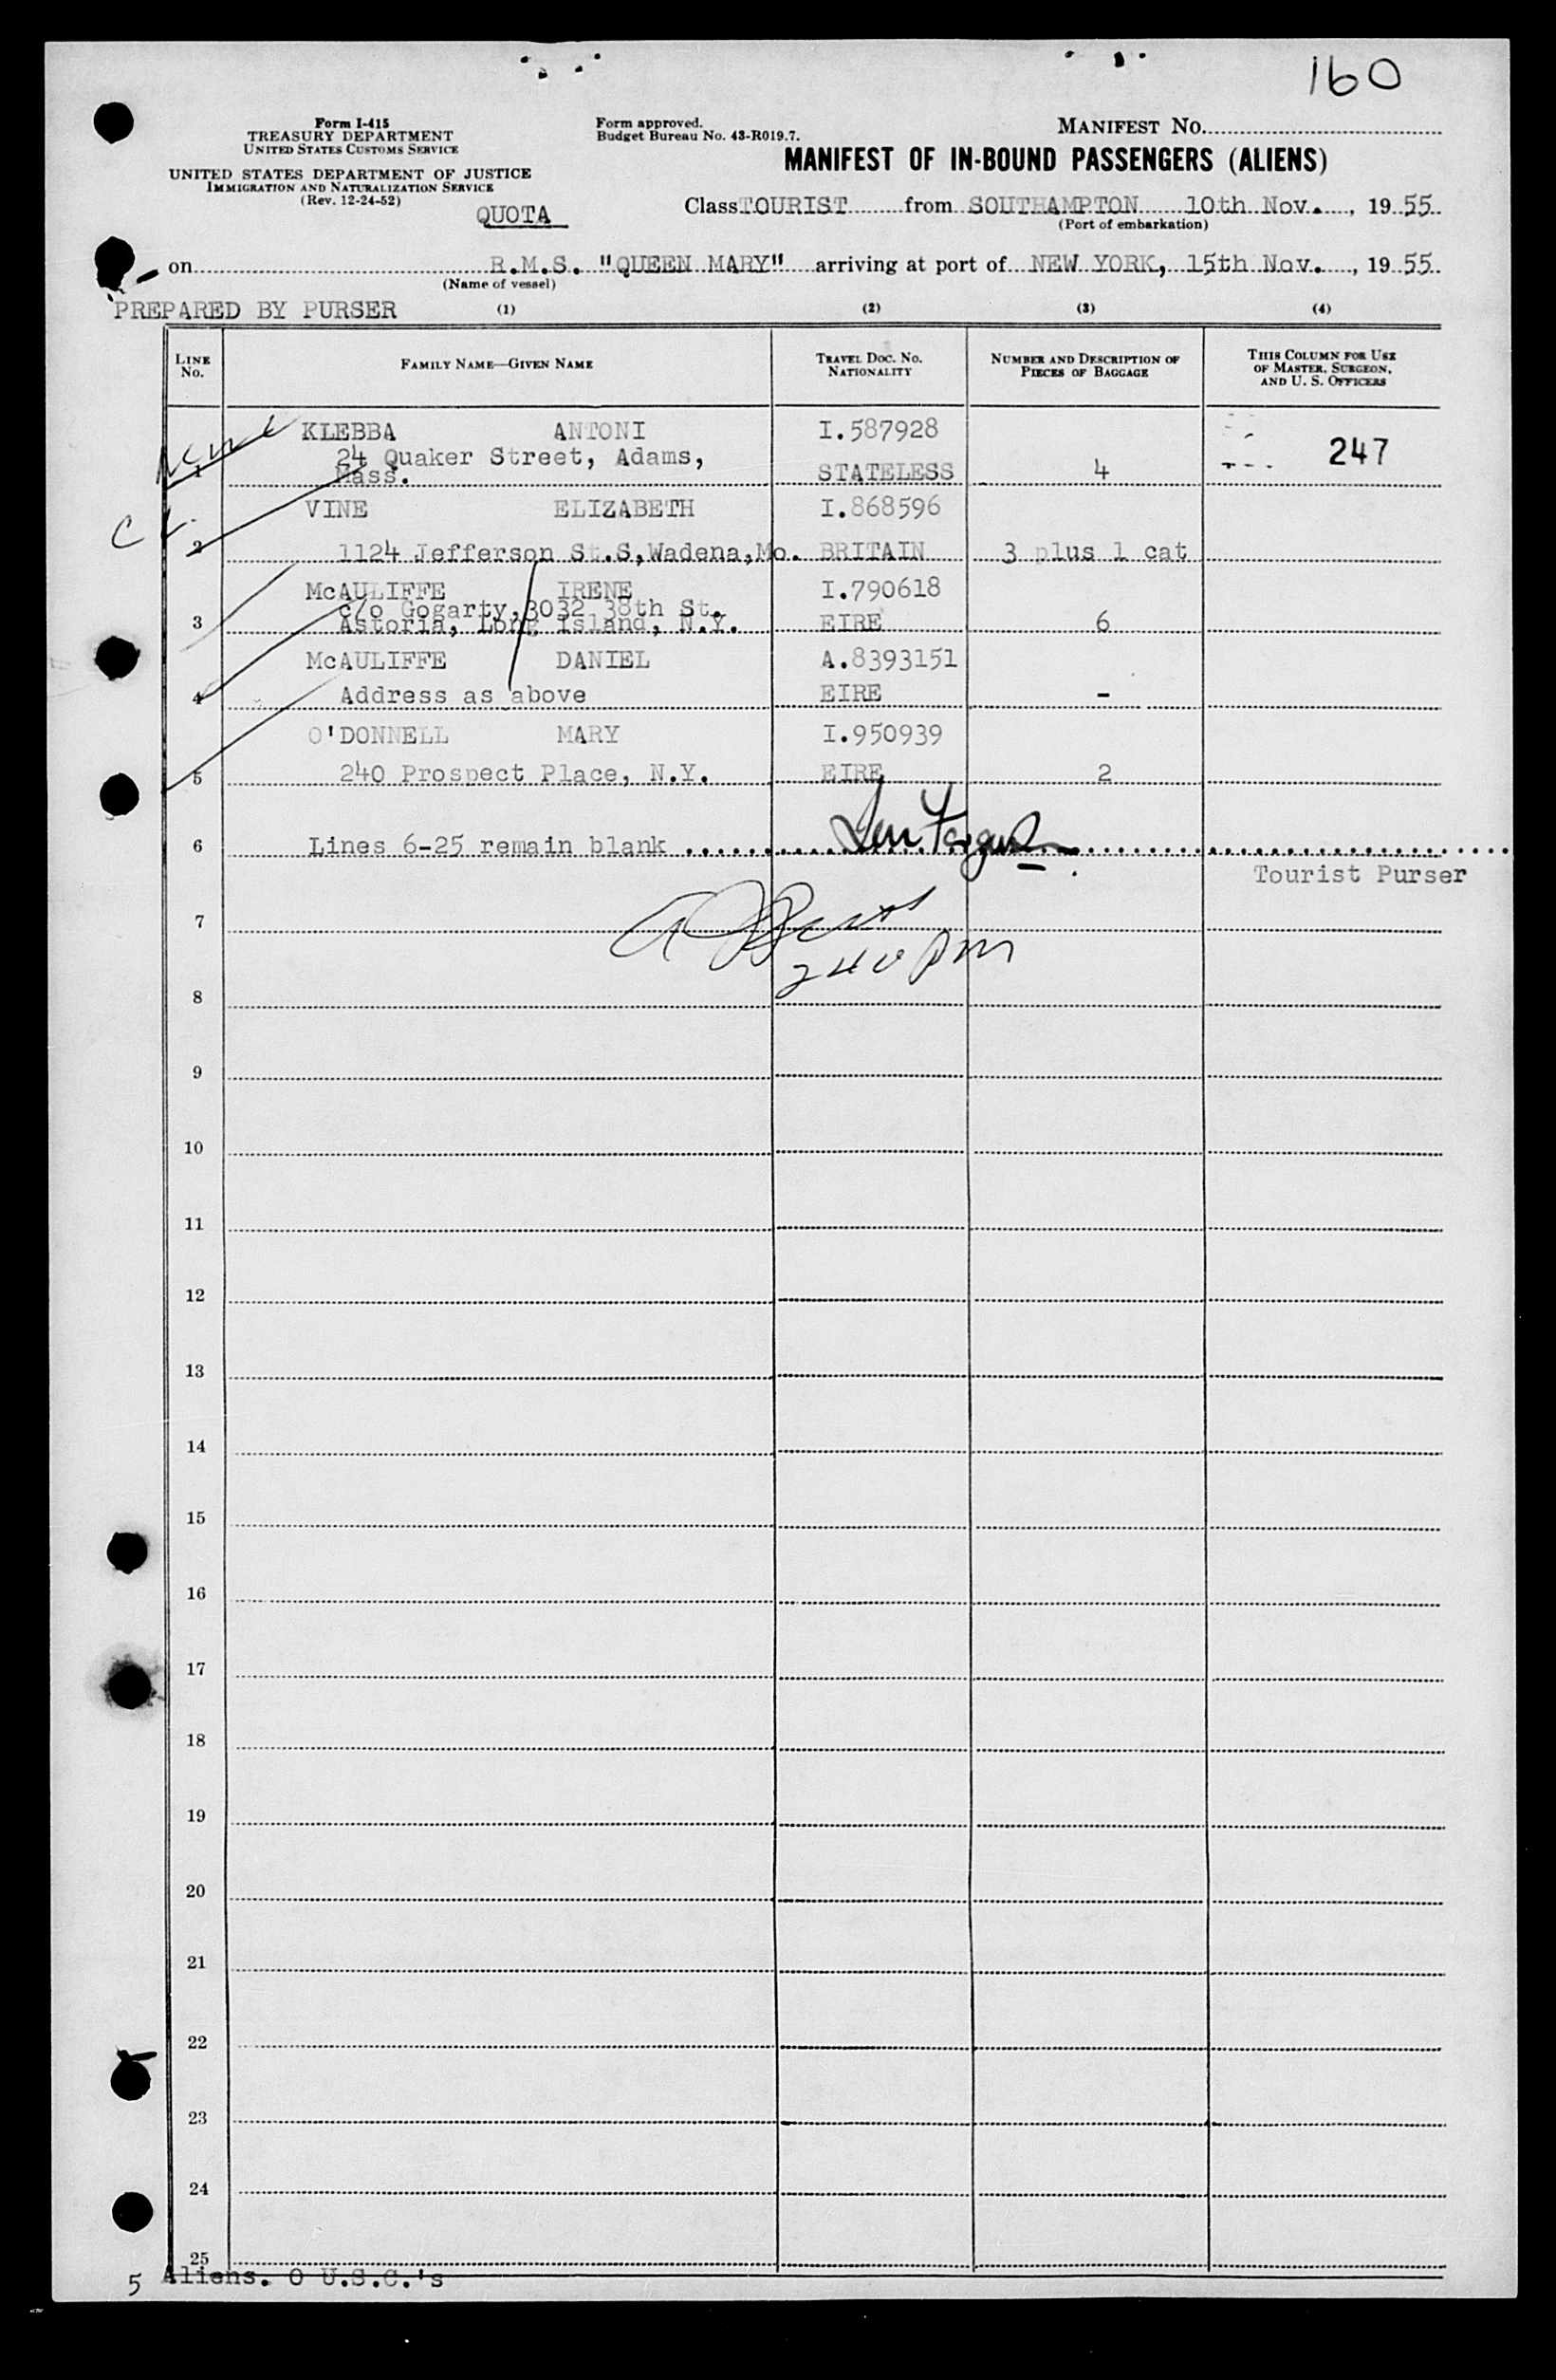 160
Form I-415
TREASURY DEPARTMENT
UNITED STATES CUSTOMS SERVICE
UNITED STATES DEPARTMENT OF JUSTICE
IMMIGRATION AND NATURALIZATION SERVICE
(Rev. 12-24-52)
Form approved.
Budget Bureau No. 43-R019.7.
MANIFEST NO.
MANIFEST OF IN-BOUND PASSENGERS (ALIENS)
QUOTA
Class TOURIST from SOUTHAMPTON 10th Nov. , 19 55
(Port of embarkation)
on R.M.S. "QUEEN MARY" arriving at port of NEW YORK, 15th Nov. , 19 55
(Name of vessel)
PREPARED BY PURSER (1) (2) (3) (4)
LINE NO. FAMILY NAME—GIVEN NAME TRAVEL DOC. NO. NATIONALITY NUMBER AND DESCRIPTION OF PIECES OF BAGGAGE THIS COLUMN FOR USE OF MASTER, SURGEON, AND U. S. OFFICERS
KLEBBA ANTONI I.587928 247
24 Quaker Street, Adams,
1 Mass. STATELESS 4
VINE ELIZABETH I.868596
2 1124 Jefferson St.S,Wadena,Mo. BRITAIN 3 plus 1 cat
McAULIFFE IRENE I.790618
c/o Gogarty,3032 38th St.
3 Astoria, Long Island, N.Y. EIRE 6
McAULIFFE DANIEL A.8393151
4 Address as above EIRE -
O'DONNELL MARY I.950939
5 240 Prospect Place, N.Y. EIRE 2
6 Lines 6-25 remain blank
Tourist Purser
7
240 PM
8
9
10
11
12
13
14
15
16
17
18
19
20
21
22
23
24
25
5 Aliens. 0 U.S.C.'s